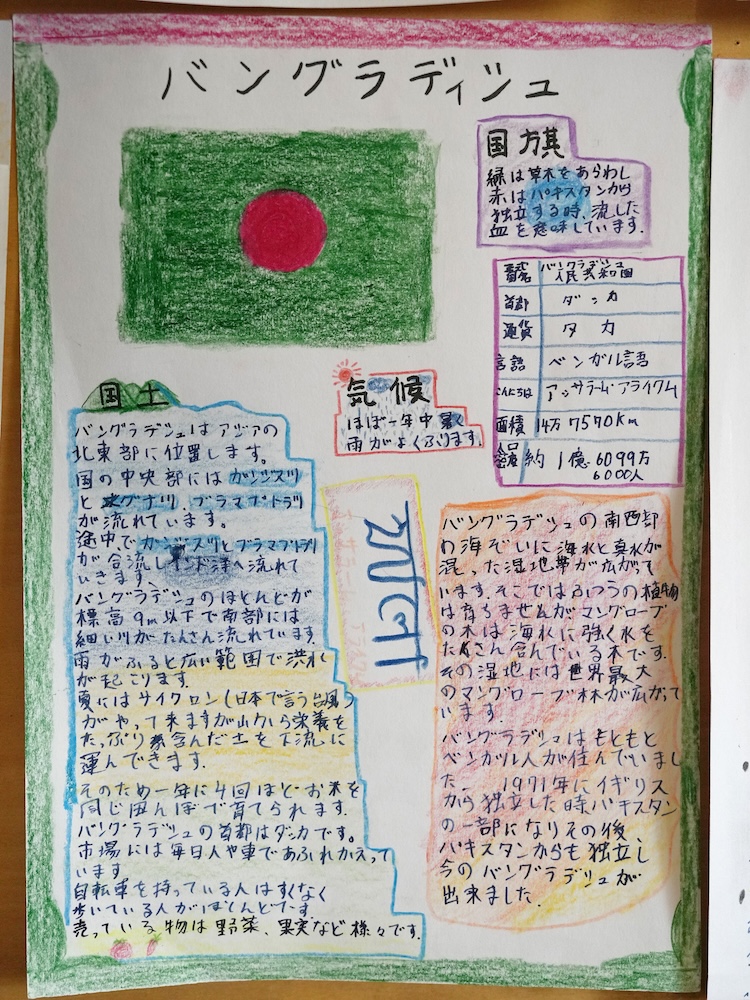 バングラディシュ
国旗
緑は草木をあらわし
赤はパキスタンから
独立する時、流した
血を意味しています.
バングラデシュ
人民共和国
首都 ダッカ
通貨 タカ
言語 ベンガル語
こんにちは アッサラーム・アライクム
面積 14万7570km
約1億6099万
6000人
気候
ほぼ一年中暑く
雨がよくふります.
国土
バングラデシュはアジアの
北東部に位置します。
国の中央部にはガンジスリ
と グナリ、ブラマプトラリ
が流れています。
途中でガンジスリとブラマプトラリ
が合流しインド洋へ流れて
いきます、
バングラデシュのほとんどが
標高9m以下で南部には
細い川がたんさん流れています.
雨がふると広い範囲で洪水
が起こります.
夏にはサイクロン(日本で言う台風)
がやって来ますが山から栄養を
たっぷり含んだ土を下流に
運んできます.
そのため一年に4回ほどお米を
同じ田んぼで育てられます.
バングラデシュの首都はダッカです。
市場には毎日人や車であふれかえって
います
自転車を持っている人はすくなく
歩いている人がほとんどです
売っている物は野菜、果実など様々です.
バングラデシュの南西部
の海ぞいに海水と真水が
混った湿地帯が広がって
います.そこではふつうの植物
は育ちませんがマングローブ
の木は海水に強く水を
たくさん含んでいる木です.
その湿地には世界最大
のマングローブ林が広がって
います
バングラデシュはもともと
ベンガル人が住んでいまし
た. 1971年にイギリス
から独立した時パキスタン
の一部になりその後、
パキスタンからも独立し
今のバングラデシュが
出来ました.